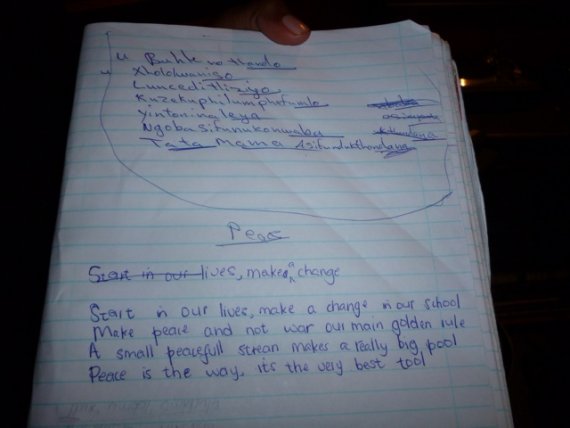 u Buhle no thando
Xhololwaniso
Luncedi tliziyo
Kuzekuphilumphefumlo
yintoninaleya
Ngoba sifunukonwaba
Tata Mama Asifundukthandana
Peace
Start in our lives, make a change
Start in our lives, make a change in our school
Make peace and not war our main golden rule
A small peacefull strean makes a really big pool
Peace is the way, its the very best tool